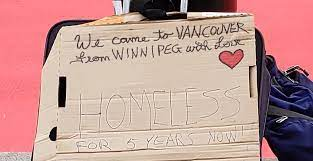 We came to VANCOUVER
from WINNIPEG with Love
HOMELESS
FOR 5 YEARS NOW!